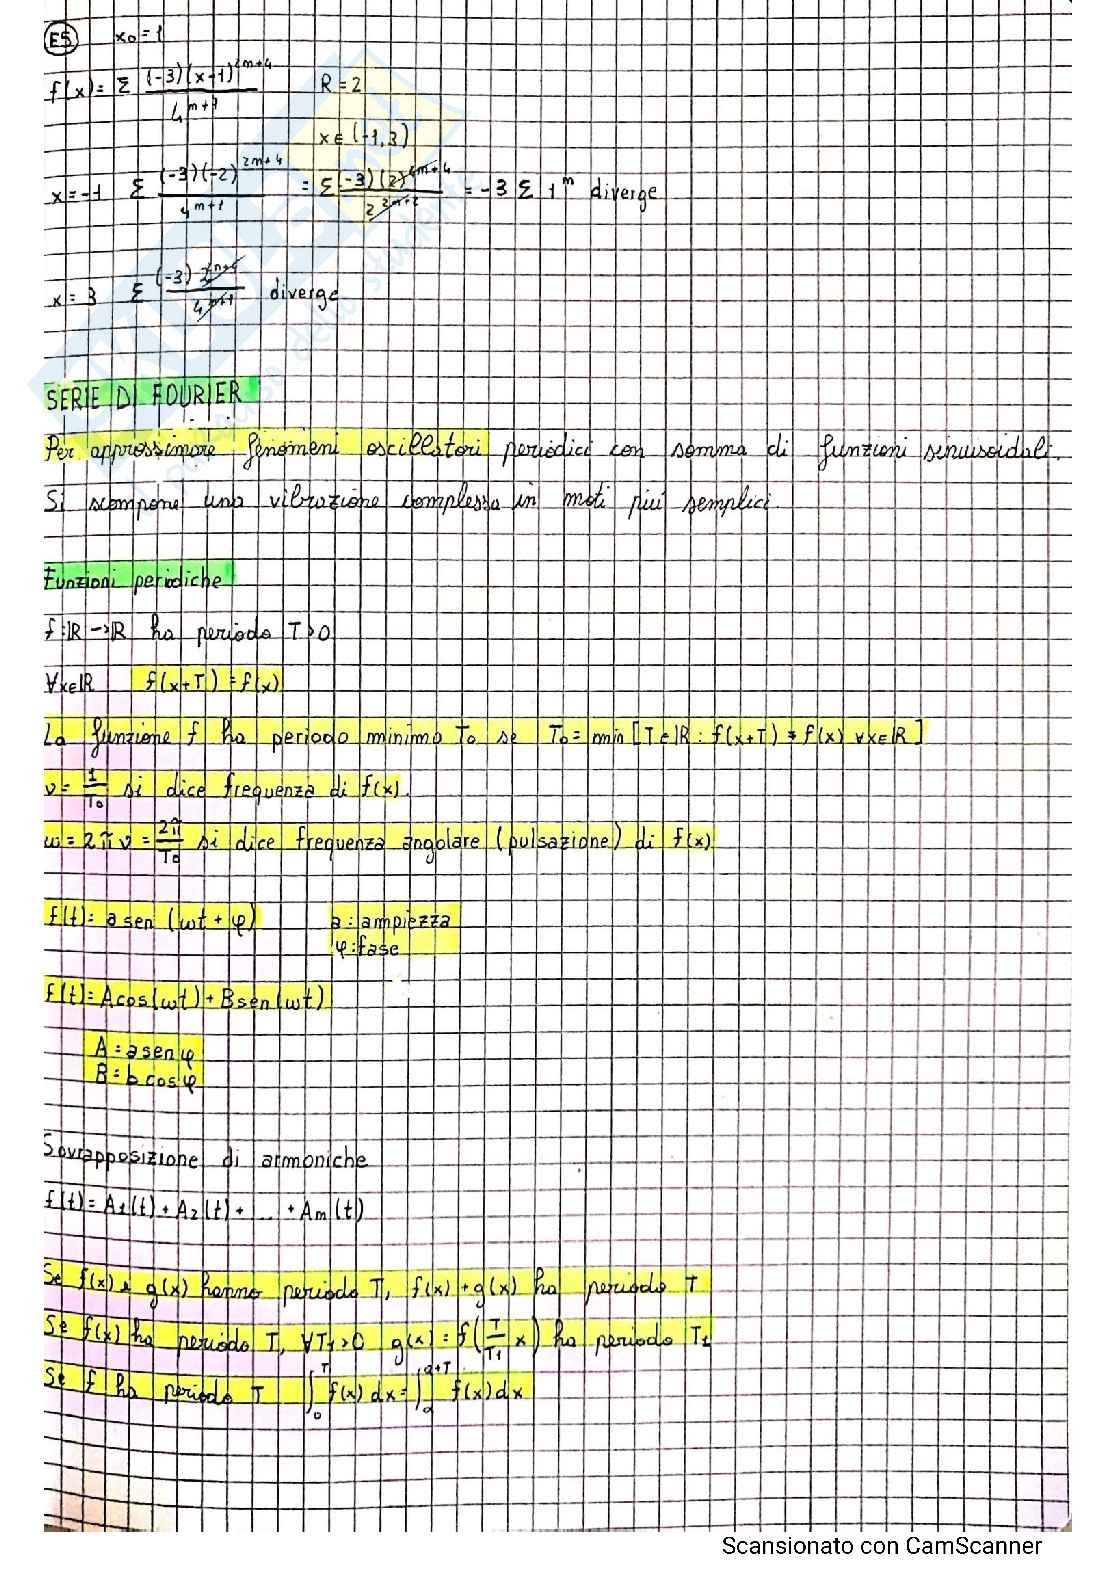 ES x₀ = 1
f(x) = Σ (-3)(x-1)^{2m+4} / 4^{m+1} R = 2
x ∈ (-1,3)
x = -1 Σ (-3)(-2)^{2m+4} / 4^{m+1} = Σ (-3)(2)^{2m+4} / 2^{2m+2} = -3 Σ 1^m diverge
x = 3 Σ (-3) 2^{2m+4} / 4^{m+1} diverge
SERIE DI FOURIER
Per approssimare fenomeni oscillatori periodici con somma di funzioni sinusoidali.
Si scompone una vibrazione complessa in moti più semplici.
Funzioni periodiche
f: ℝ → ℝ ha periodo T>0
∀x∈ℝ f(x+T) = f(x)
La funzione f ha periodo minimo T₀ se T₀ = min [T∈ℝ : f(x+T) = f(x) ∀x∈ℝ]
ν = 1/T₀ si dice frequenza di f(x).
ω = 2πν = 2π/T₀ si dice frequenza angolare (pulsazione) di f(x)
f(t) = a sen (ωt + φ) a: ampiezza
φ: fase
f(t) = A cos(ωt) + B sen(ωt)
A = a sen φ
B = b cos φ
Sovrapposizione di armoniche
f(t) = A₁(t) + A₂(t) + ... + Am(t)
Se f(x) e g(x) hanno periodo T, f(x) + g(x) ha periodo T
Se f(x) ha periodo T, ∀T₁>0 g(x) = f(T/T₁ x) ha periodo T₁
Se f ha periodo T ∫₀^T f(x) dx = ∫_a^{a+T} f(x) dx
Scansionato con CamScanner